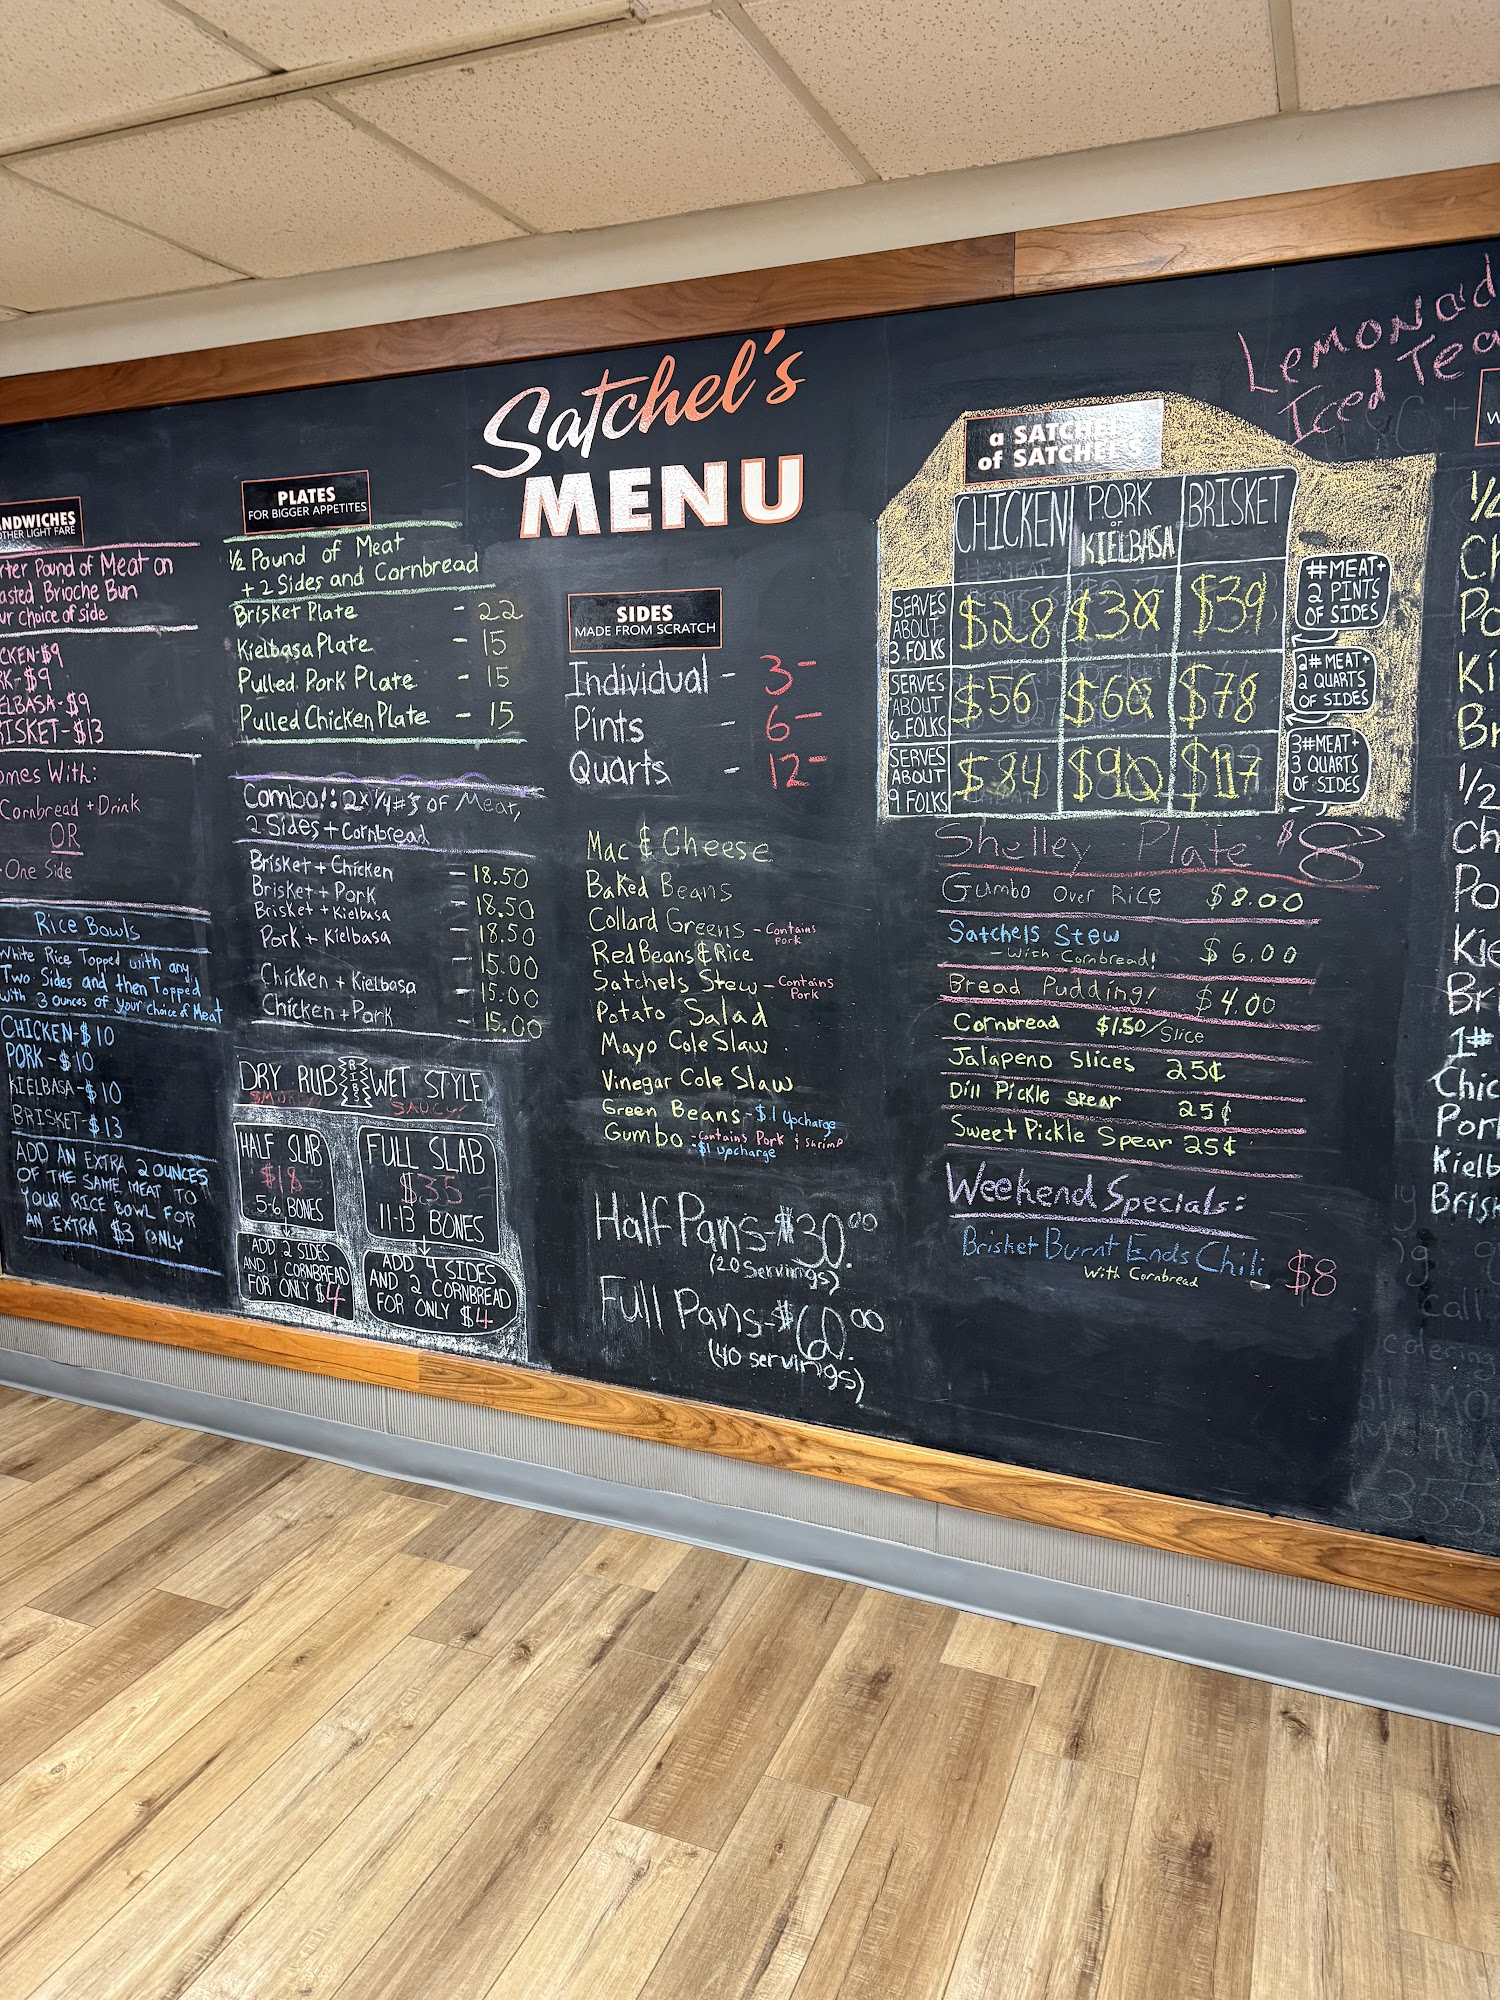 Satchel's
MENU
ANDWICHES
OTHER LIGHT FARE
rter Pound of Meat on
asted Brioche Bun
ur choice of side
CKEN-$9
RK-$9
ELBASA-$9
RISKET-$13
omes With:
Cornbread + Drink
OR
-One Side
Rice Bowls
White Rice Topped with any
Two Sides and then Topped
with 3 ounces of your choice of Meat
CHICKEN-$10
PORK-$10
KIELBASA-$10
BRISKET-$13
ADD AN EXTRA 2 OUNCES
OF THE SAME MEAT TO
YOUR RICE BOWL FOR
AN EXTRA $3 ONLY
PLATES
FOR BIGGER APPETITES
1/2 Pound of Meat
+ 2 Sides and Cornbread
Brisket Plate - 22
Kielbasa Plate - 15
Pulled Pork Plate - 15
Pulled Chicken Plate - 15
Combo!: 2x 1/4#'s of Meat,
2 Sides + Cornbread
Brisket + Chicken - 18.50
Brisket + Pork - 18.50
Brisket + Kielbasa - 18.50
Pork + Kielbasa - 15.00
Chicken + Kielbasa - 15.00
Chicken + Pork - 15.00
DRY RUB RIBS WET STYLE
SMOKEY! SAUCY!
HALF SLAB
$18
5-6 BONES
ADD 2 SIDES
AND 1 CORNBREAD
FOR ONLY $4
FULL SLAB
$35
11-13 BONES
ADD 4 SIDES
AND 2 CORNBREAD
FOR ONLY $4
SIDES
MADE FROM SCRATCH
Individual - 3-
Pints - 6-
Quarts - 12-
Mac & Cheese
Baked Beans
Collard Greens - Contains Pork
Red Beans & Rice
Satchels Stew - Contains Pork
Potato Salad
Mayo Cole Slaw
Vinegar Cole Slaw
Green Beans - $1 Upcharge
Gumbo - Contains Pork & Shrimp
- $1 Upcharge
Half Pans-$30.00
(20 Servings)
Full Pans-$60.00
(40 servings)
a SATCHEL
of SATCHEL'S
CHICKEN PORK or KIELBASA BRISKET
SERVES ABOUT 3 FOLKS $28 $30 $39
#MEAT+ 2 PINTS OF SIDES
SERVES ABOUT 6 FOLKS $56 $60 $78
2#MEAT+ 2 QUARTS OF SIDES
SERVES ABOUT 9 FOLKS $84 $90 $117
3#MEAT+ 3 QUARTS OF SIDES
Shelley Plate $8
Gumbo Over Rice $8.00
Satchels Stew $6.00
- With Cornbread!
Bread Pudding! $4.00
Cornbread $1.50/Slice
Jalapeno Slices 25¢
Dill Pickle Spear 25¢
Sweet Pickle Spear 25¢
Weekend Specials:
Brisket Burnt Ends Chili $8
With Cornbread
Lemonad
Iced Tea
1/4
Ch
Po
Ki
Br
1/2
Ch
Po
Kie
Bri
1#
Chic
Pork
Kielb
Brisk
call
catering
355